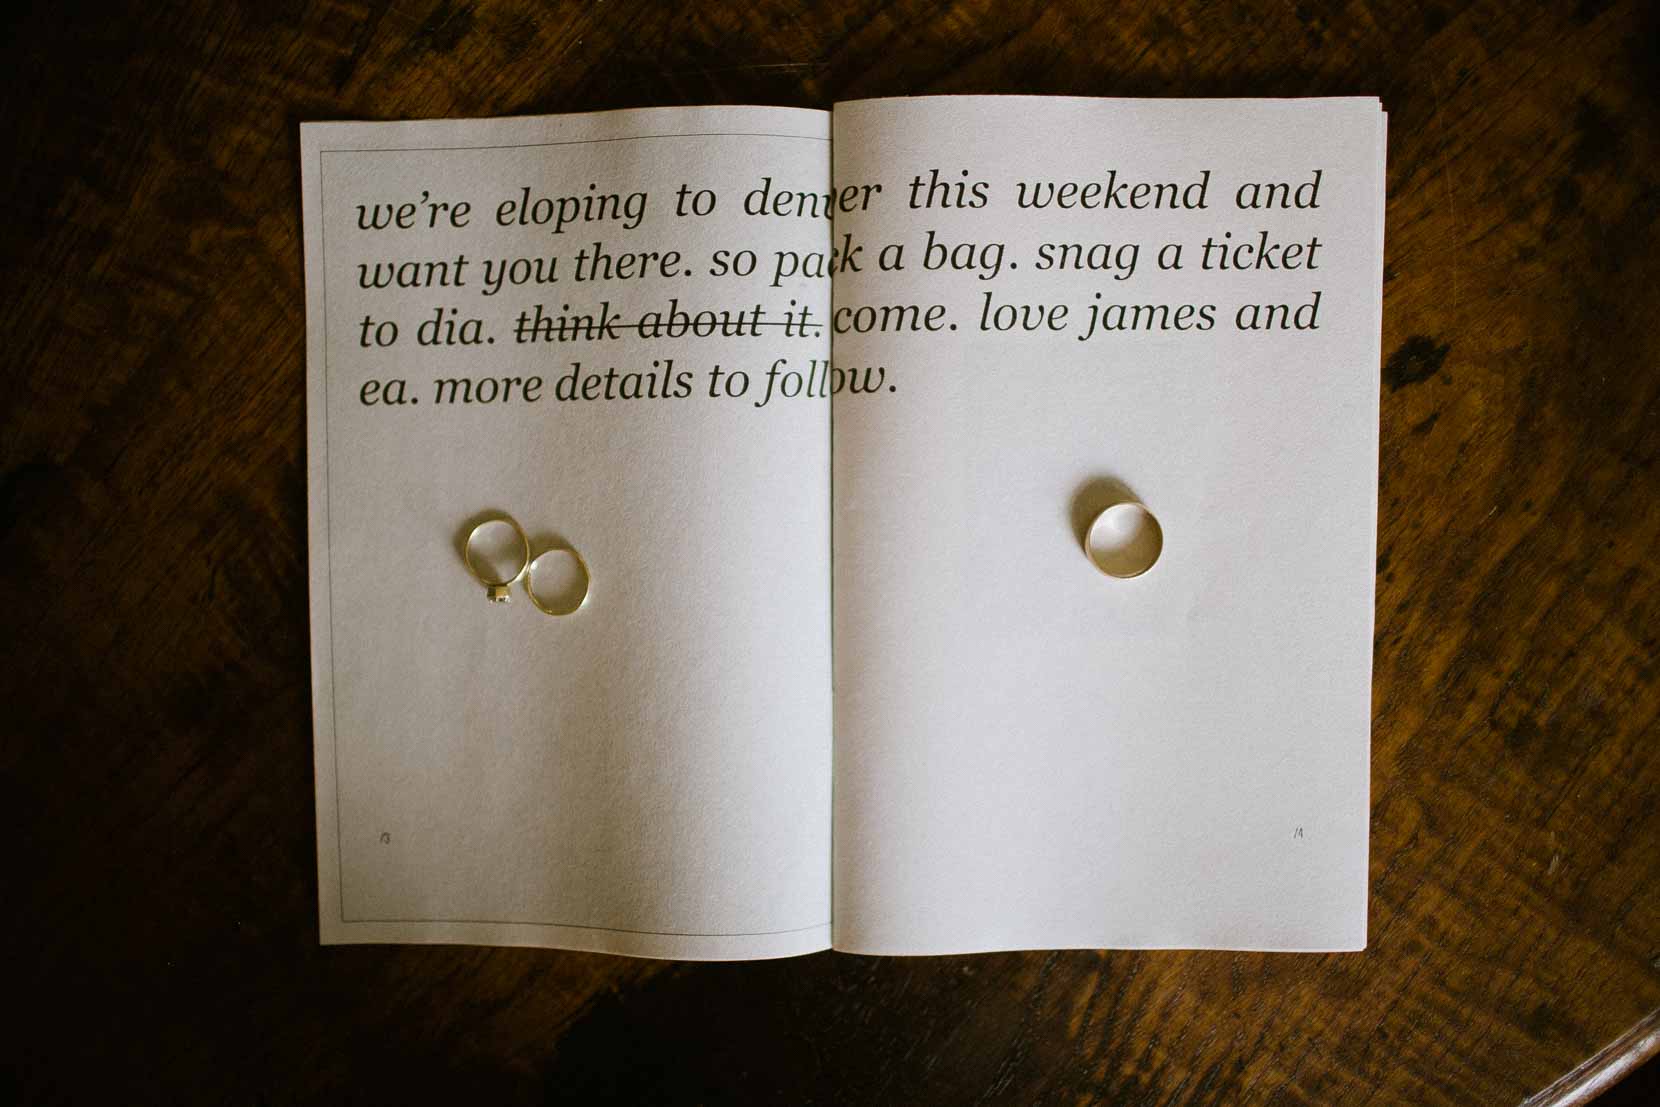 we're eloping to denver this weekend and
want you there. so pack a bag. snag a ticket
to dia. think about it. come. love james and
ea. more details to follow.
13 14